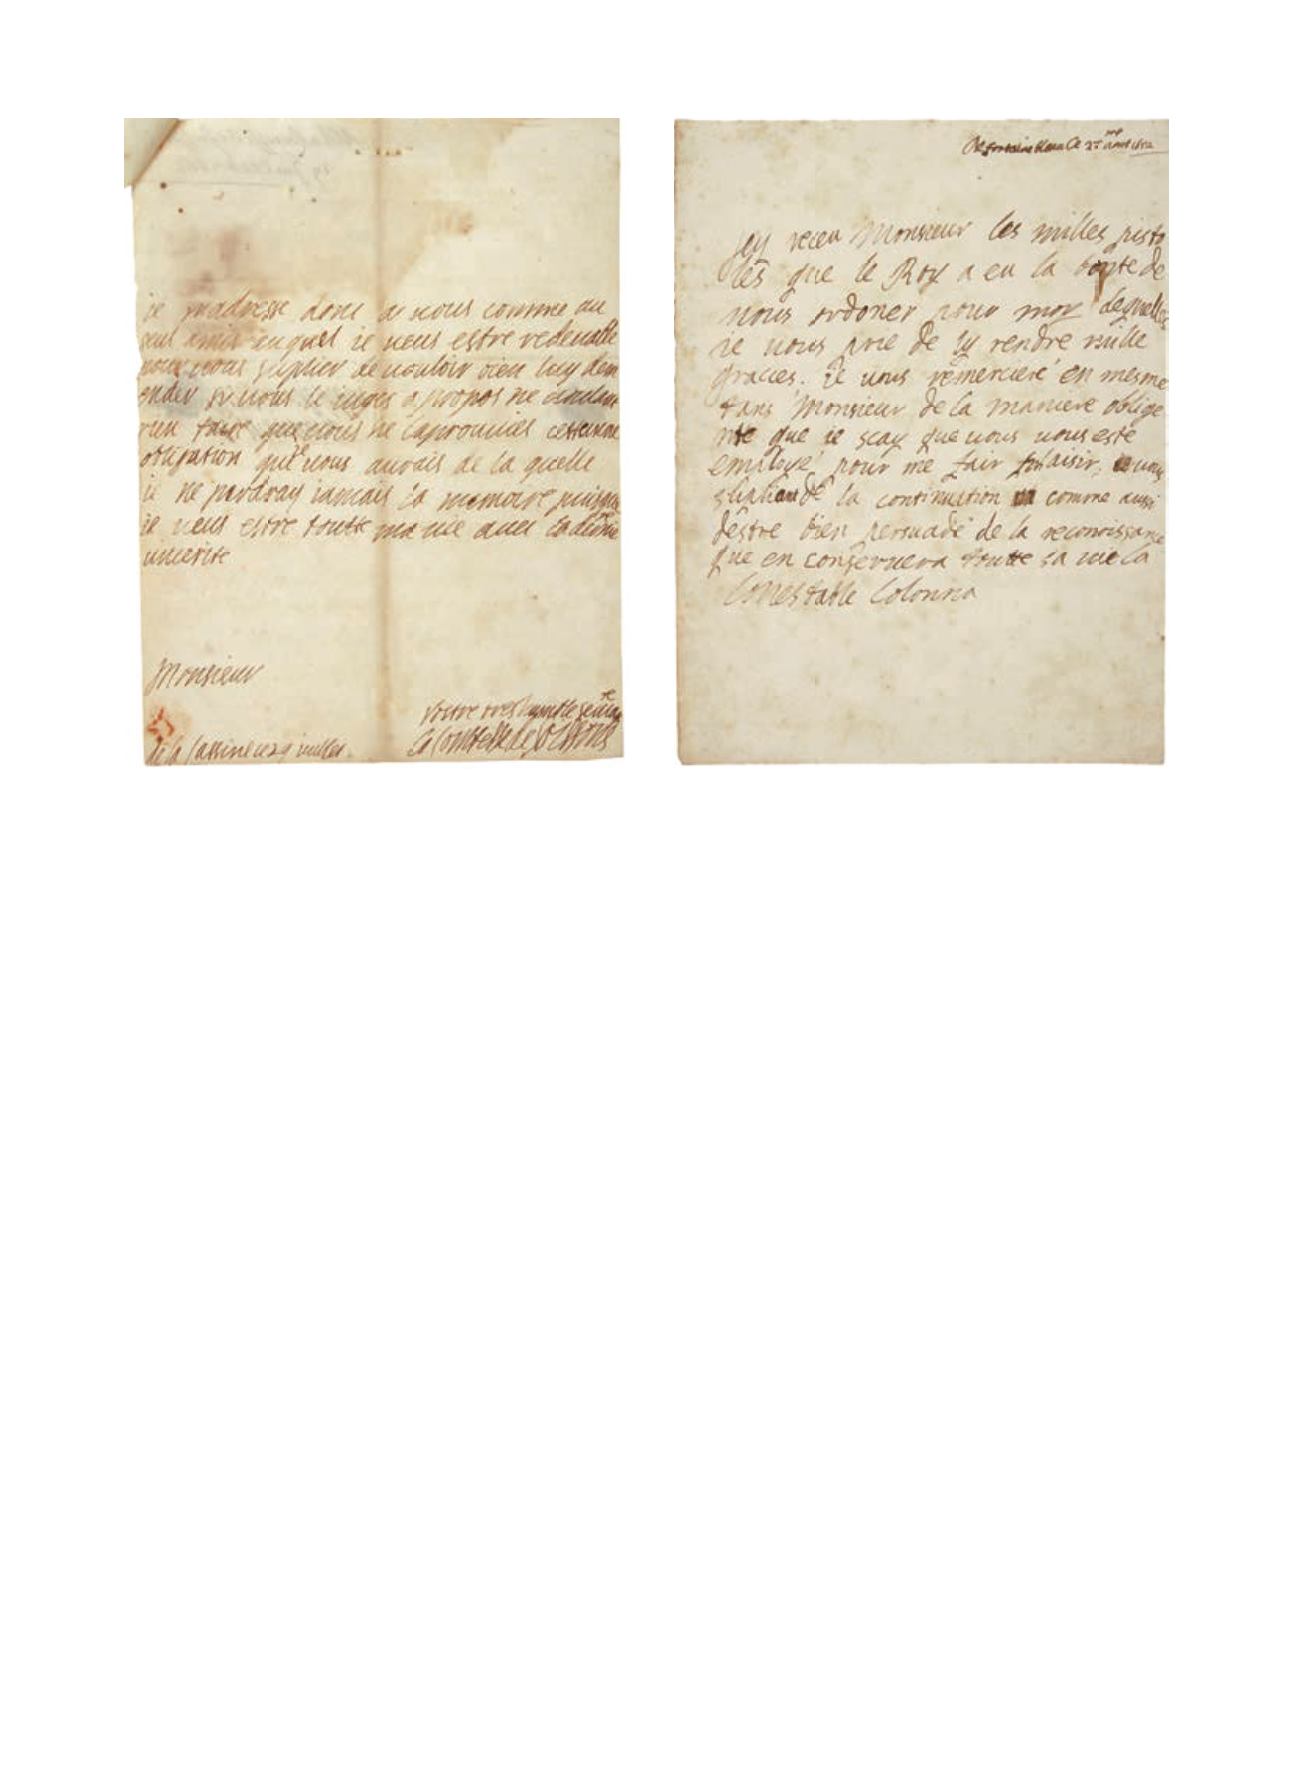 je m'adresse donc a vous comme au
seul amis auquel je veus estre redevable
pour vous suplier de vouloir bien luy dem
ander si vous le juges a propos ne voulant
rien faire que vous ne l'aprouvies
obligation que vous aurais de la quelle
je ne perdray jamais la memoire puisque
je veus estre toutte ma vie avec la derniere
sincerite
Monsieur
vostre tres humble servante
la Comtesse de Soissons
de la
De fontainebleau ce 25me aout 1672
Jey receu Monsieur les milles pisto
lẽs que le Roy a eu la bonte de
vous ordoner pour moy desquelles
je vous prie de ly rendre mille
graces. je vous remercieré en mesme
tans Monsieur de la maniere oblige
nte que je sçay que vous vous este
employé pour me fair plaisir, vous
supliant de la continuation comme aussi
destre bien persuadé de la reconoissance
que en conservera toutte sa vie la
Conestable Colonna